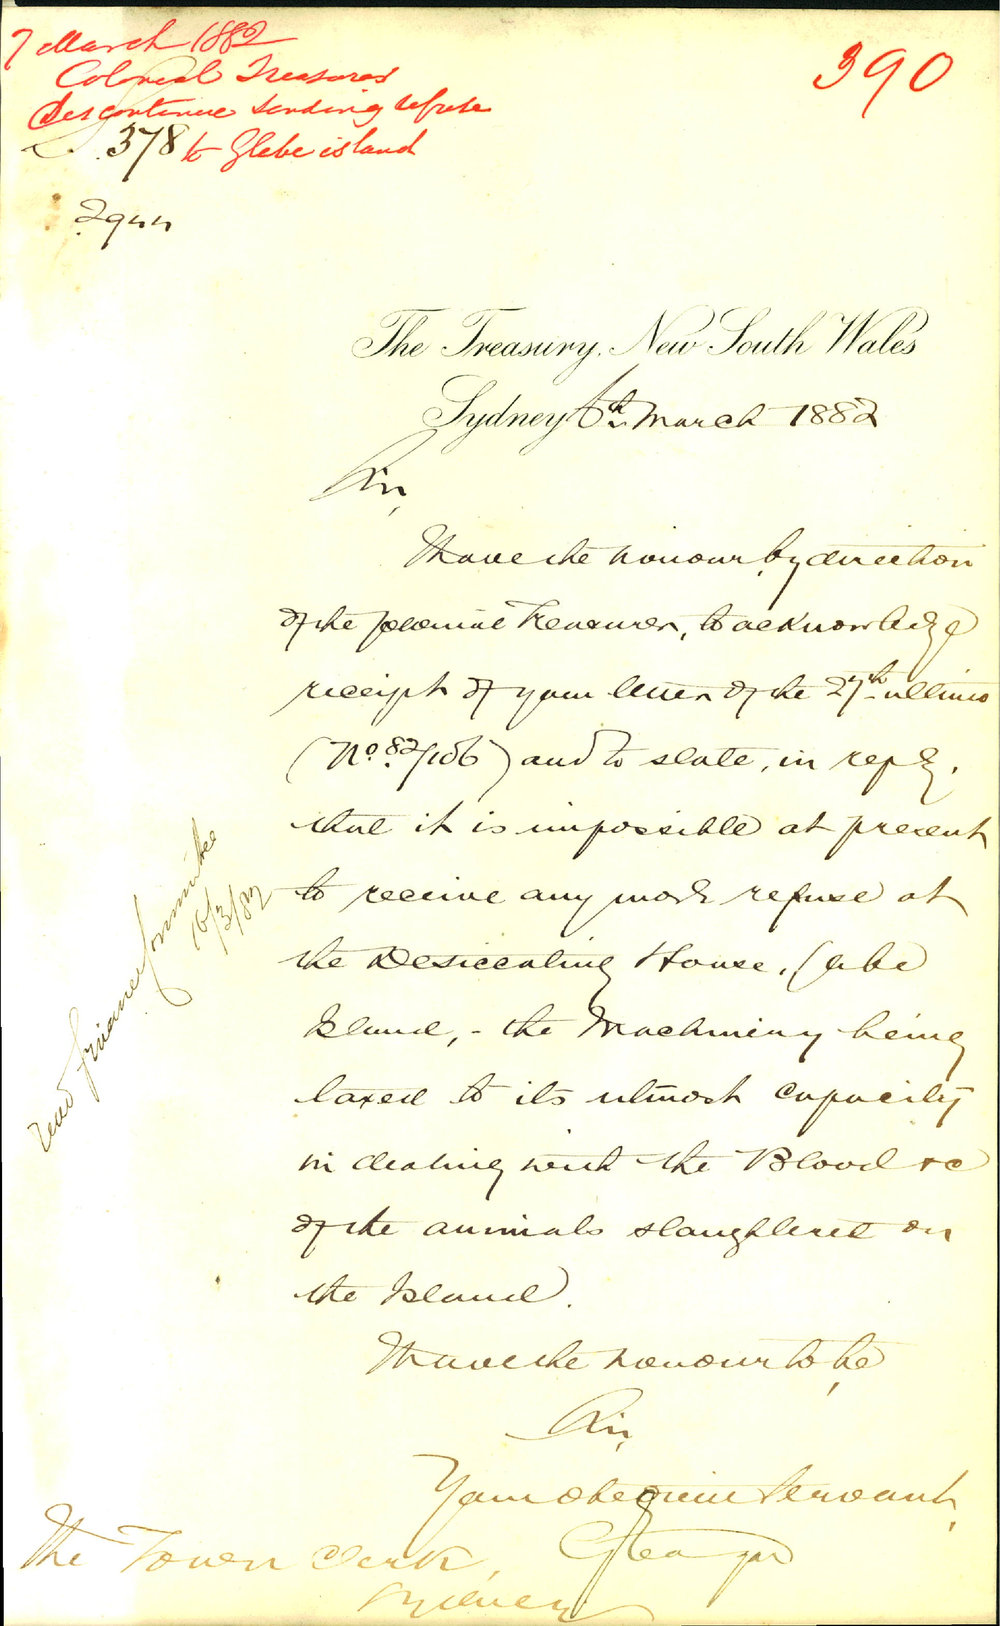 7 March 1882
Colonial Treasurer
discontinue sending refuse
378 to Glebe island
390
2944
The Treasury, New South Wales
Sydney 6th March 1882
Sir,
I have the honour by direction
of the Colonial Treasurer, to acknowledge
receipt of your letter of the 27th ultimo
(No. 82/106) and to state, in reply,
that it is impossible at present
to receive any more refuse at
the Desiccating House, Glebe
Island, - the Machinery being
taxed to its utmost capacity
in dealing with the Blood &c
of the animals slaughtered on
the Island.
Read Finance Committee
16/3/82
I have the honour to be
Sir,
Your obedient Servant,
The Town Clerk,
Sydney